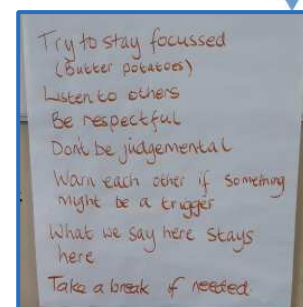 Try to stay focussed
(Butter potatoes)
Listen to others
Be respectful
Don't be judgemental
Warn each other if something
might be a trigger
What we say here stays
here
Take a break if needed.